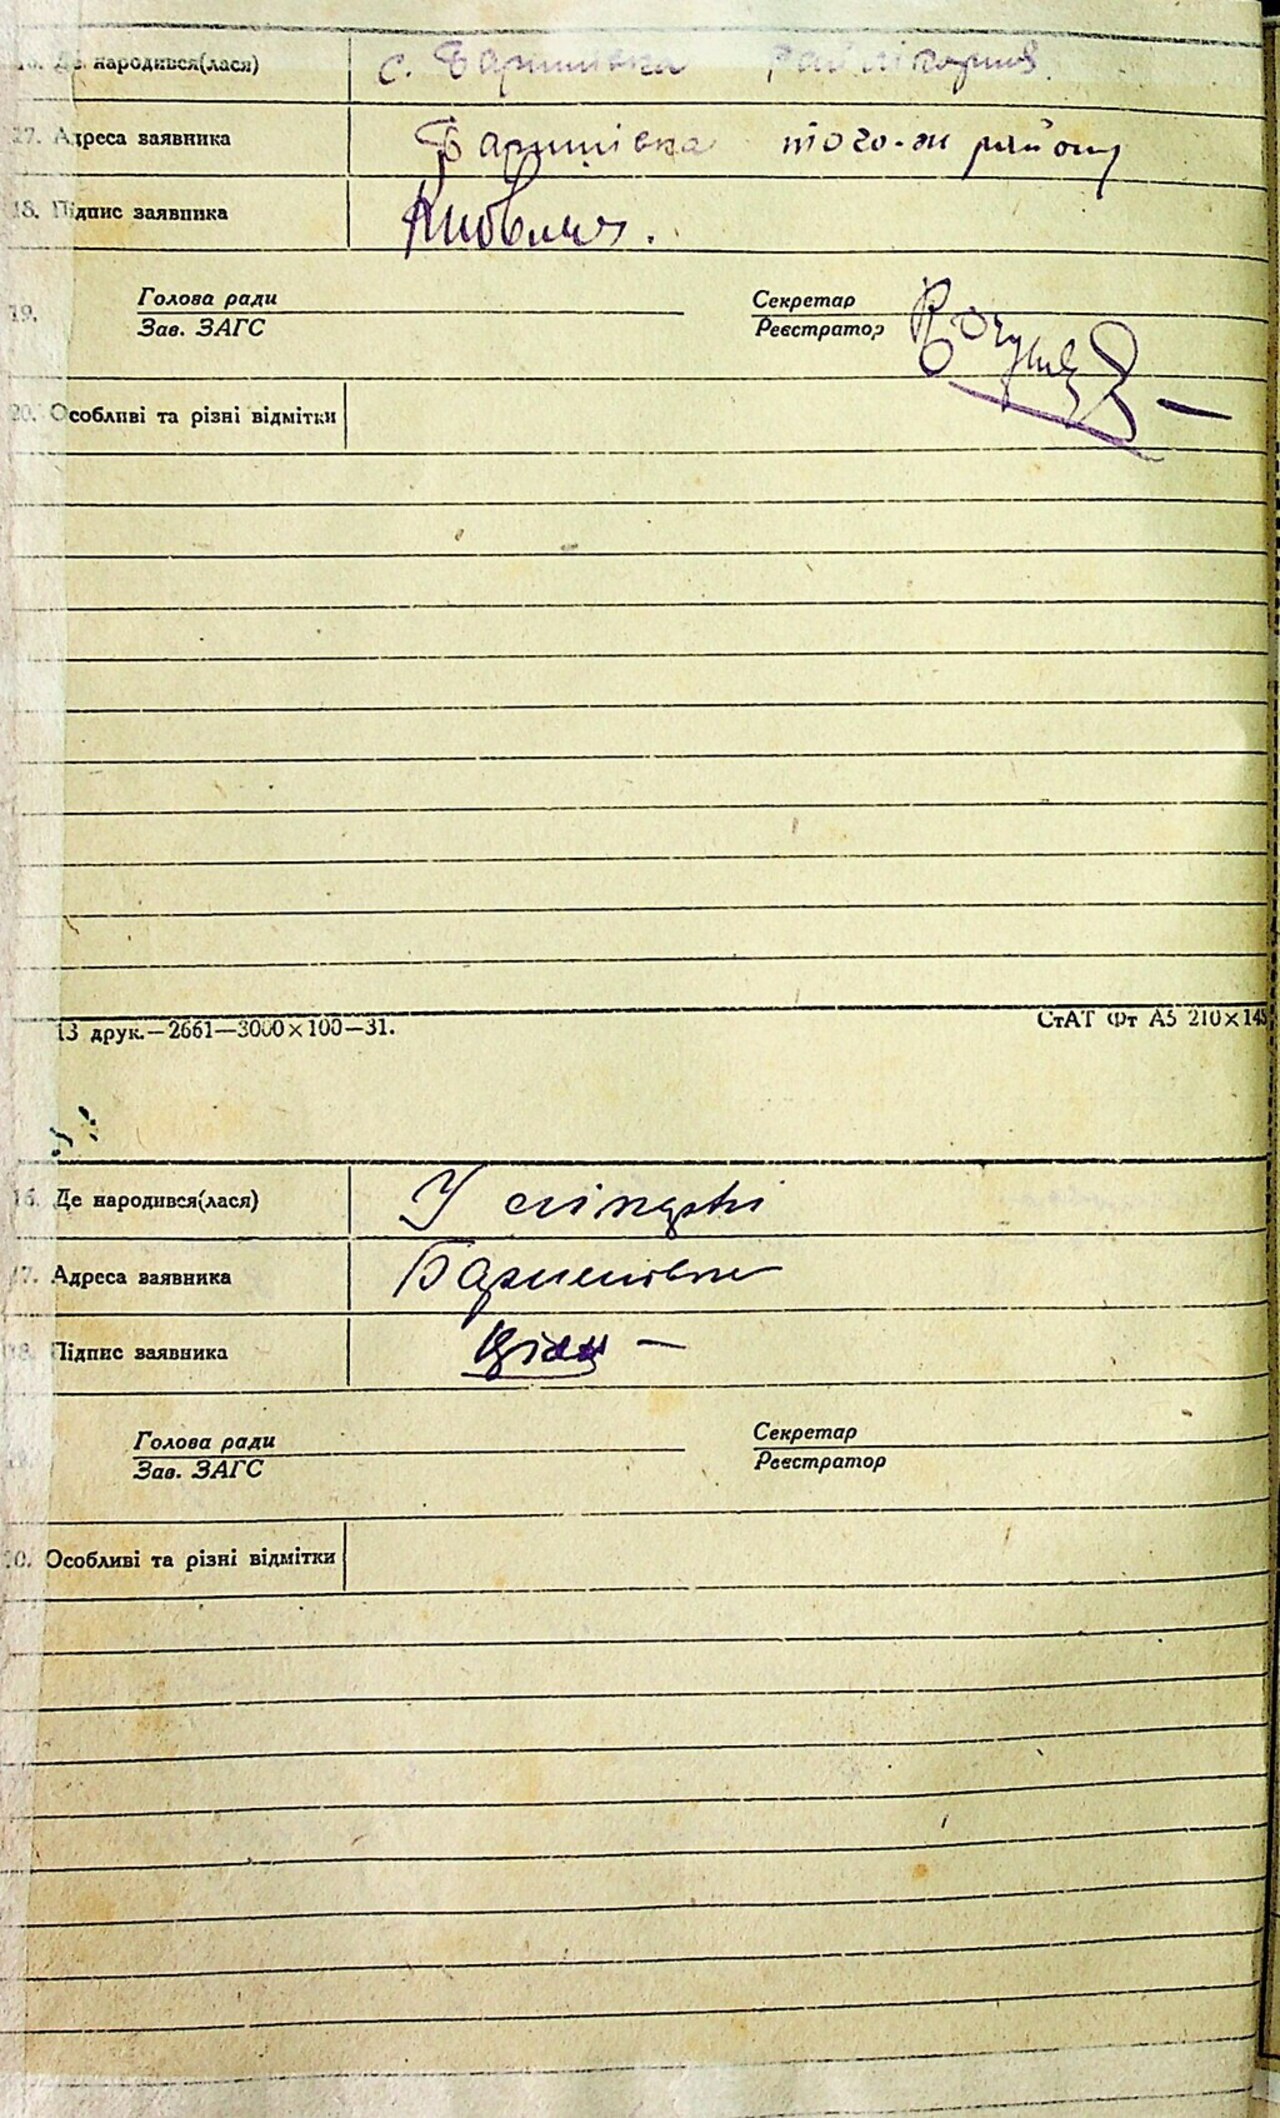 16. Де народився(лася) с. Баришівка
17. Адреса заявника Баришівка того-ж району
18. Підпис заявника
Голова ради Секретар
19.
Зав. ЗАГС Реєстратор
20. Особливі та різні відмітки
13 друк.—2661—3000×100—31. СтАТ Фт А5 210×148
16. Де народився(лася) У
17. Адреса заявника Баришівка
18. Підпис заявника
Голова ради Секретар
Зав. ЗАГС Реєстратор
20. Особливі та різні відмітки